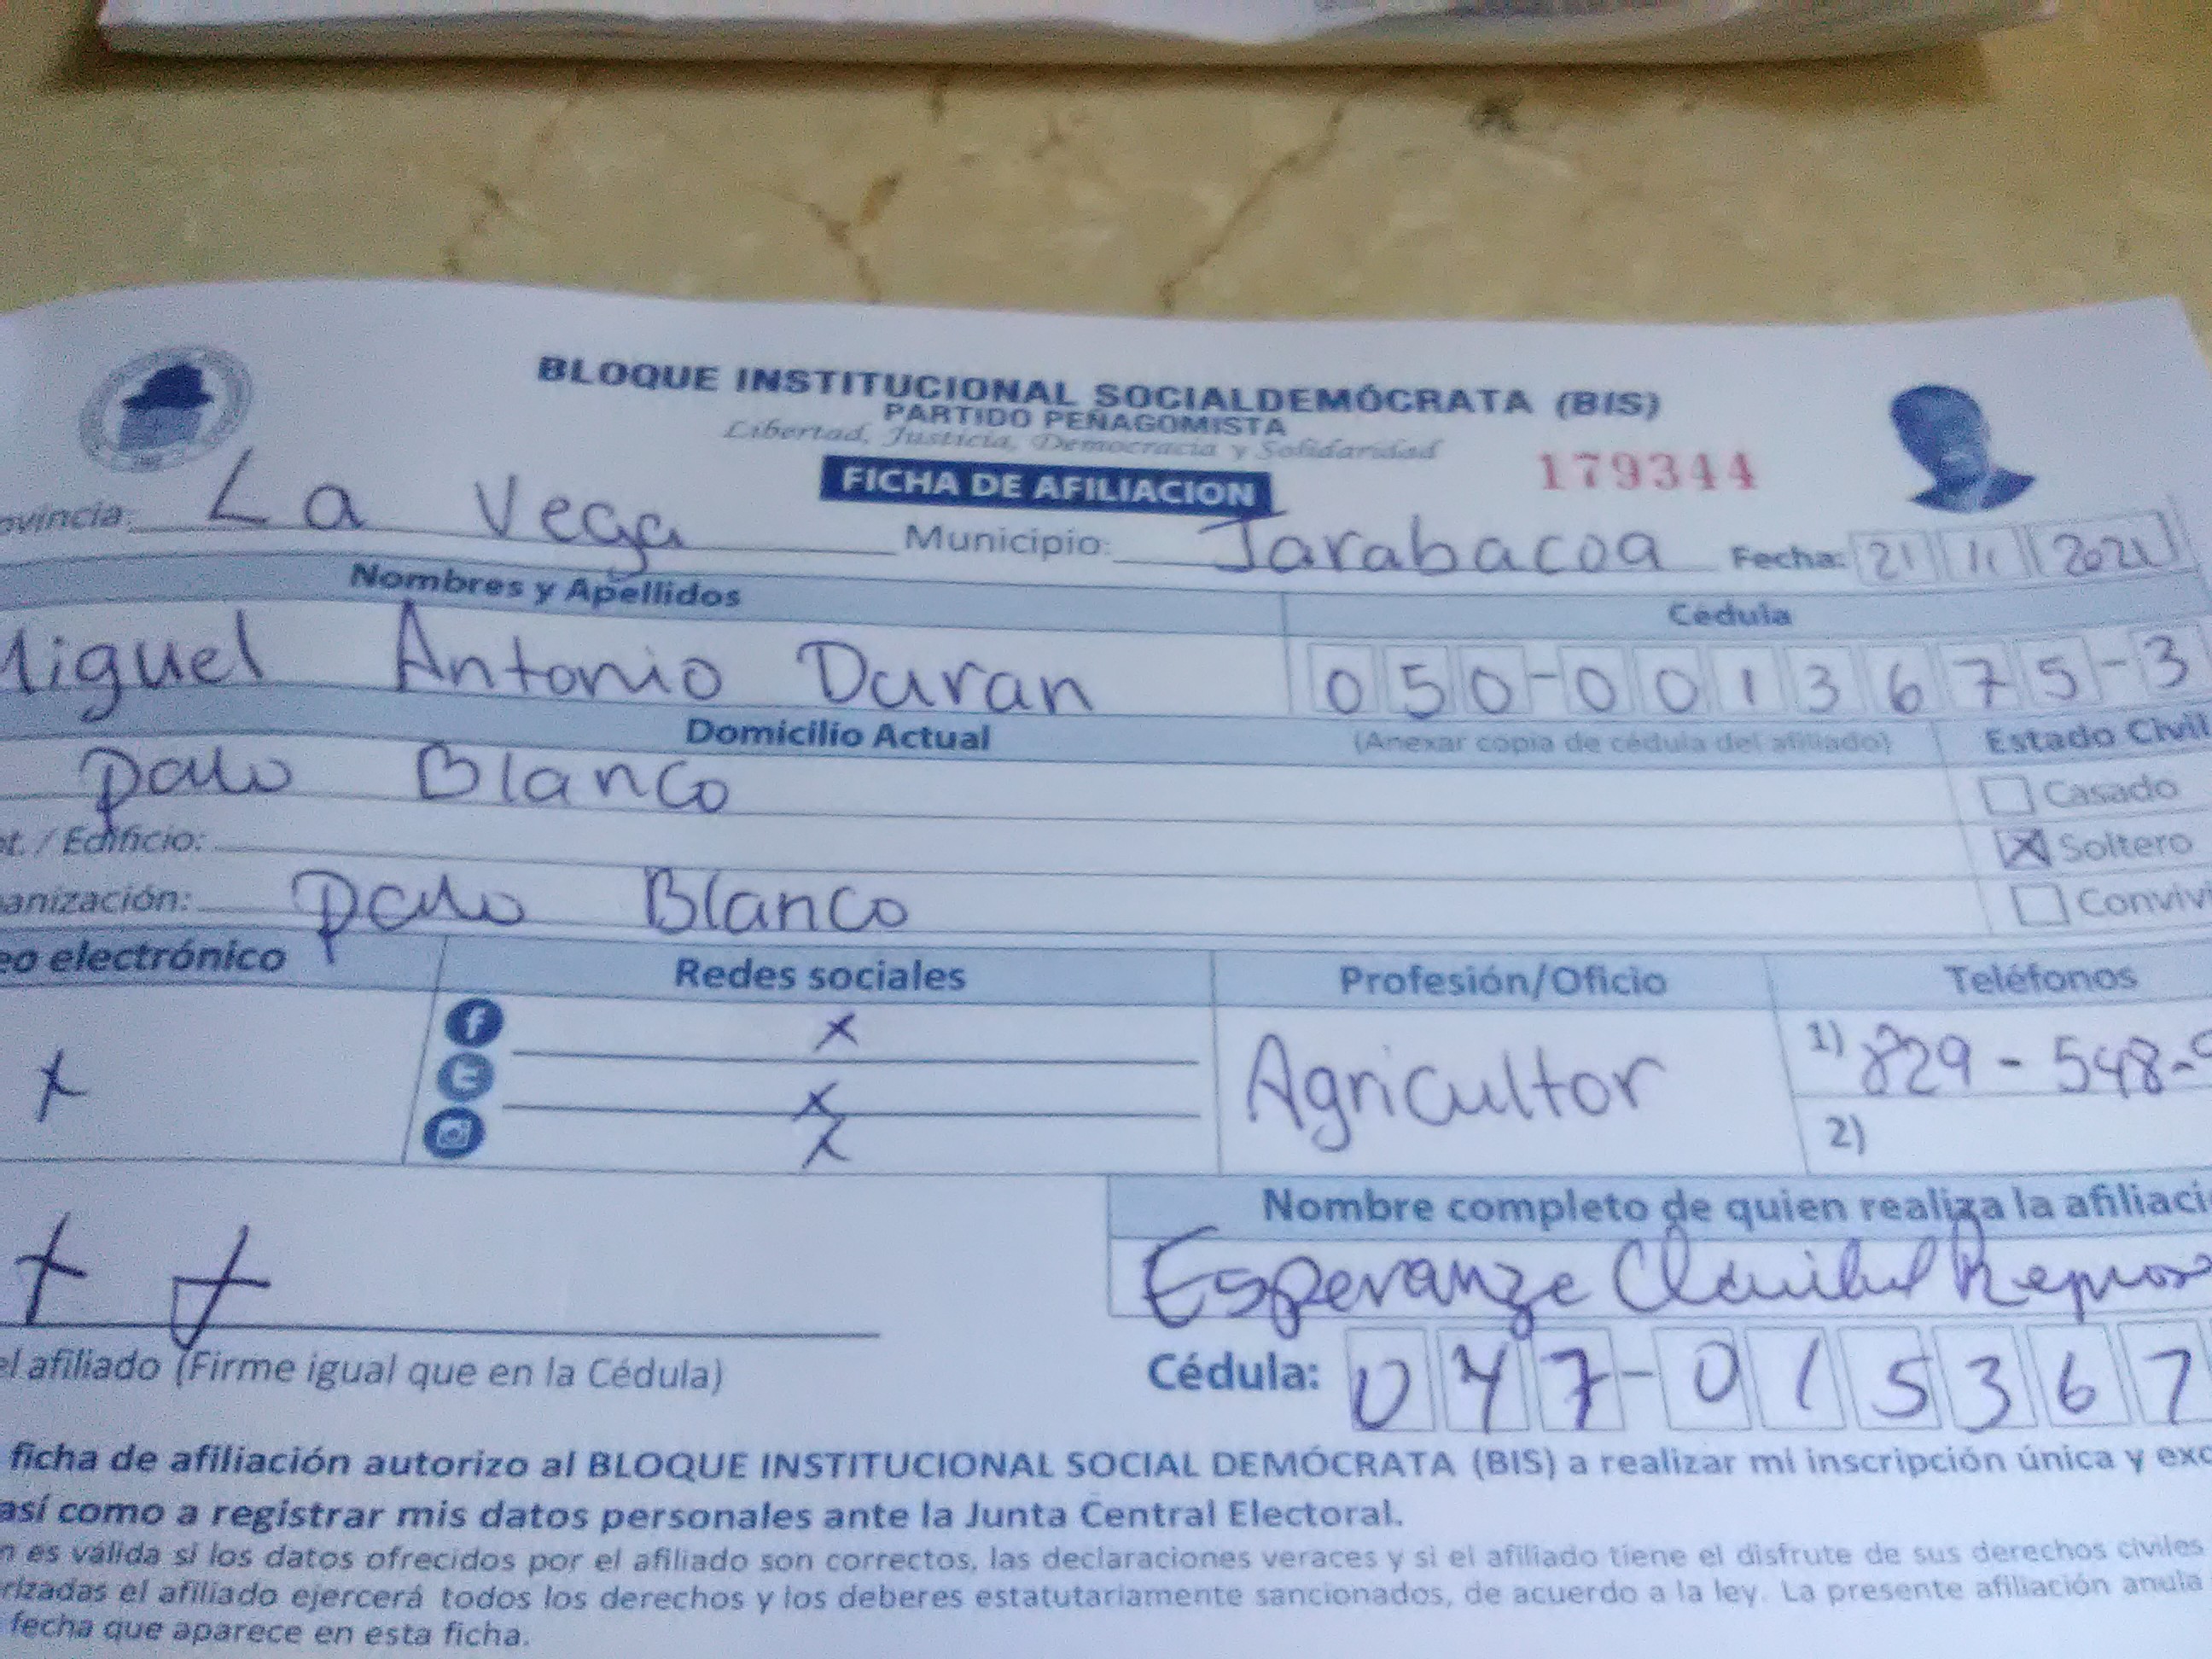 BLOQUE INSTITUCIONAL SOCIALDEMÓCRATA (BIS)
PARTIDO PEÑAGOMISTA
Libertad, Justicia, Democracia y Solidaridad
FICHA DE AFILIACION 179344
ovincia: La Vega Municipio: Jarabacoa Fecha: 21 11 2021
Nombres y Apellidos Cédula
Miguel Antonio Duran 050-0013675-3
Domicilio Actual (Anexar copia de cédula del afiliado) Estado Civil
Palo Blanco Casado
ot. / Edificio: X Soltero
anización: Palo Blanco Convivi
eo electrónico Redes sociales Profesión/Oficio Teléfonos
x x Agricultor 1) 829-548-
x
x 2)
Nombre completo de quien realiza la afiliaci
x x Esperanza
el afiliado (Firme igual que en la Cédula) Cédula: 047-015367
ficha de afiliación autorizo al BLOQUE INSTITUCIONAL SOCIAL DEMÓCRATA (BIS) a realizar mi inscripción única y exc
así como a registrar mis datos personales ante la Junta Central Electoral.
n es válida si los datos ofrecidos por el afiliado son correctos, las declaraciones veraces y si el afiliado tiene el disfrute de sus derechos civiles
rizadas el afiliado ejercerá todos los derechos y los deberes estatutariamente sancionados, de acuerdo a la ley. La presente afiliación anula
fecha que aparece en esta ficha.